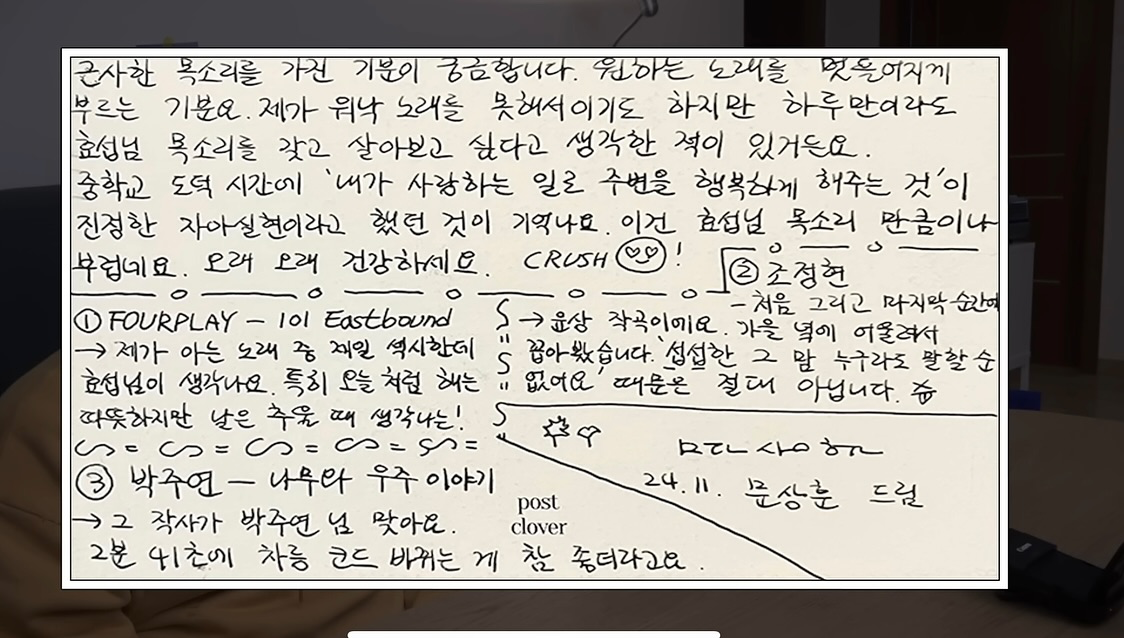 근사한 목소리를 가진 기분이 궁금합니다. 원하는 노래를 멋들어지게
부르는 기분요. 제가 워낙 노래를 못해서이기도 하지만 하루만이라도
효섭님 목소리를 갖고 살아보고 싶다고 생각한 적이 있거든요.
중학교 도덕 시간에 '내가 사랑하는 일로 주변을 행복하게 해주는 것'이
진정한 자아실현이라고 했던 것이 기억나요. 이건 효섭님 목소리 만큼이나
부럽네요. 오래 오래 건강하세요. CRUSH !
① FOURPLAY - 101 Eastbound
→ 제가 아는 노래 중 제일 섹시한데
효섭님이 생각나요. 특히 오늘처럼 해는
따뜻하지만 날은 추울 때 생각나는!
② 조정현
- 처음 그리고 마지막 순간에
→ 윤상 작곡이에요. 가을 녘에 어울려서
꼽아봤습니다. '섭섭한 그 맘 누구라도 말할 순
없어요' 때문은 절대 아닙니다.
③ 박주연 - 나무와 우주 이야기
→ 그 작사가 박주연 님 맞아요.
2분 41초에 차릉 코드 바뀌는 게 참 좋더라고요.
24.11. 문상훈 드림
post
clover